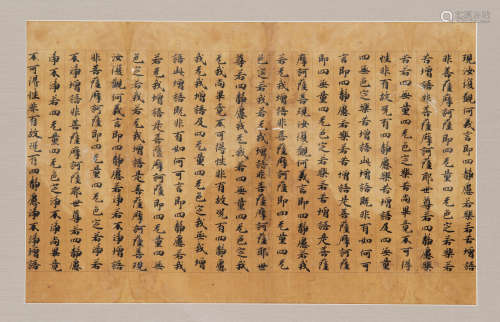 現汝復觀何義言即四靜慮若樂若苦增語
非菩薩摩訶薩即四无量四无色定若樂若
苦增語非菩薩摩訶薩耶世尊若四靜慮樂
苦若四无量四无色定樂苦尚畢竟不可得
性非有故況有四靜慮樂苦增語及四无量
四无色定樂苦增語此增語既非有如何可
言即四靜慮若樂若苦增語是菩薩摩訶薩
即四无量四无色定若樂若苦增語是菩薩
摩訶薩善現汝復觀何義言即四靜慮若我
若无我增語非菩薩摩訶薩即四无量四无
色定若我若无我增語非菩薩摩訶薩耶世
尊若四靜慮我无我若四无量四无色定我
无我尚畢竟不可得性非有故況有四靜慮
我无我增語及四无量四无色定我无我增
語此增語既非有如何可言即四靜慮若我
若无我增語是菩薩摩訶薩即四无量四无
色定若我若无我增語是菩薩摩訶薩善現
汝復觀何義言即四靜慮若淨若不淨增語
非菩薩摩訶薩即四无量四无色定若淨若
不淨增語非菩薩摩訶薩耶世尊若四靜慮
淨不淨若四无量四无色定淨不淨尚畢竟
不可得性非有故況有四靜慮淨不淨增語